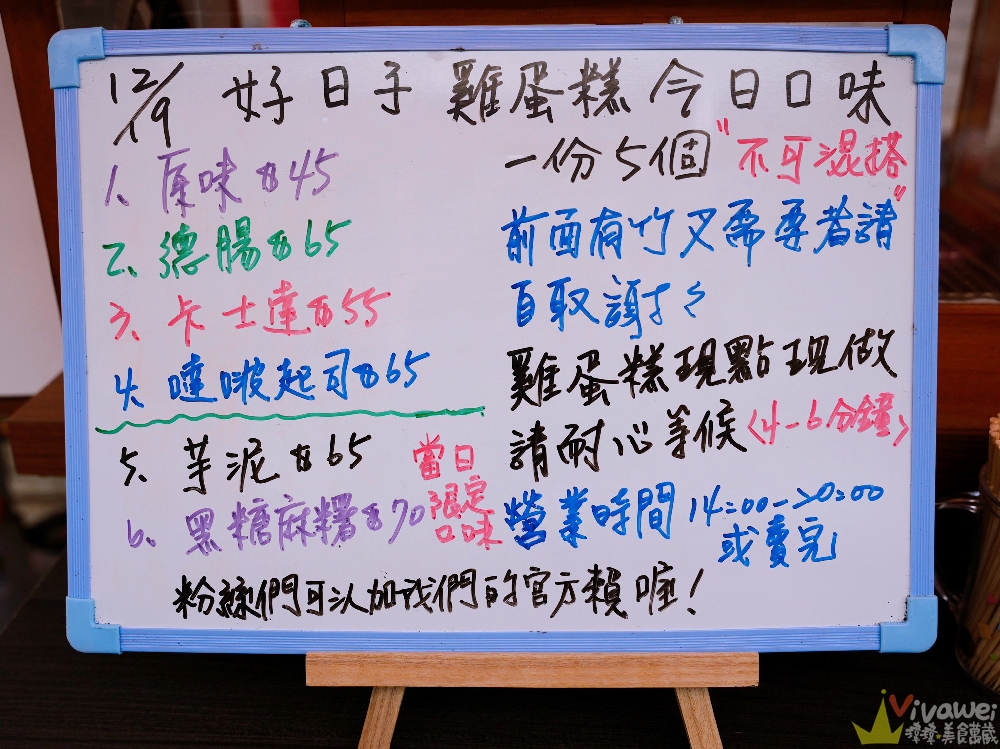 12/19 好日子雞蛋糕今日口味
1、原味$45
2、德腸$65
3、卡士達$55
4、噠啵起司$65
5、芋泥$65
6、黑糖麻糬$70
當日
限定
口味
一份5個"不可混搭"
前面有竹叉需要者請
自取謝才々
雞蛋糕現點現做
請耐心等候<4-6分鐘>
營業時間 14:00-20:00
或賣完
粉絲們可以加我們的官方賴喔!
Vivawei
瑋瑋*美食萬歲